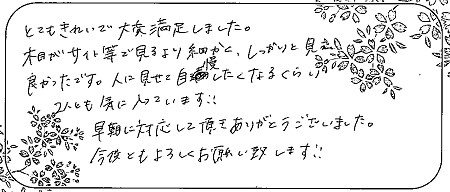 とてもきれいで大変満足しました。
木目がサイト等で見るより細かく、しっかりと見え
良かったです。人に見せて自慢したくなるくらい
2人とも気に入っています!!
早期に対応して頂きありがとうございました。
今後ともよろしくお願い致します!!